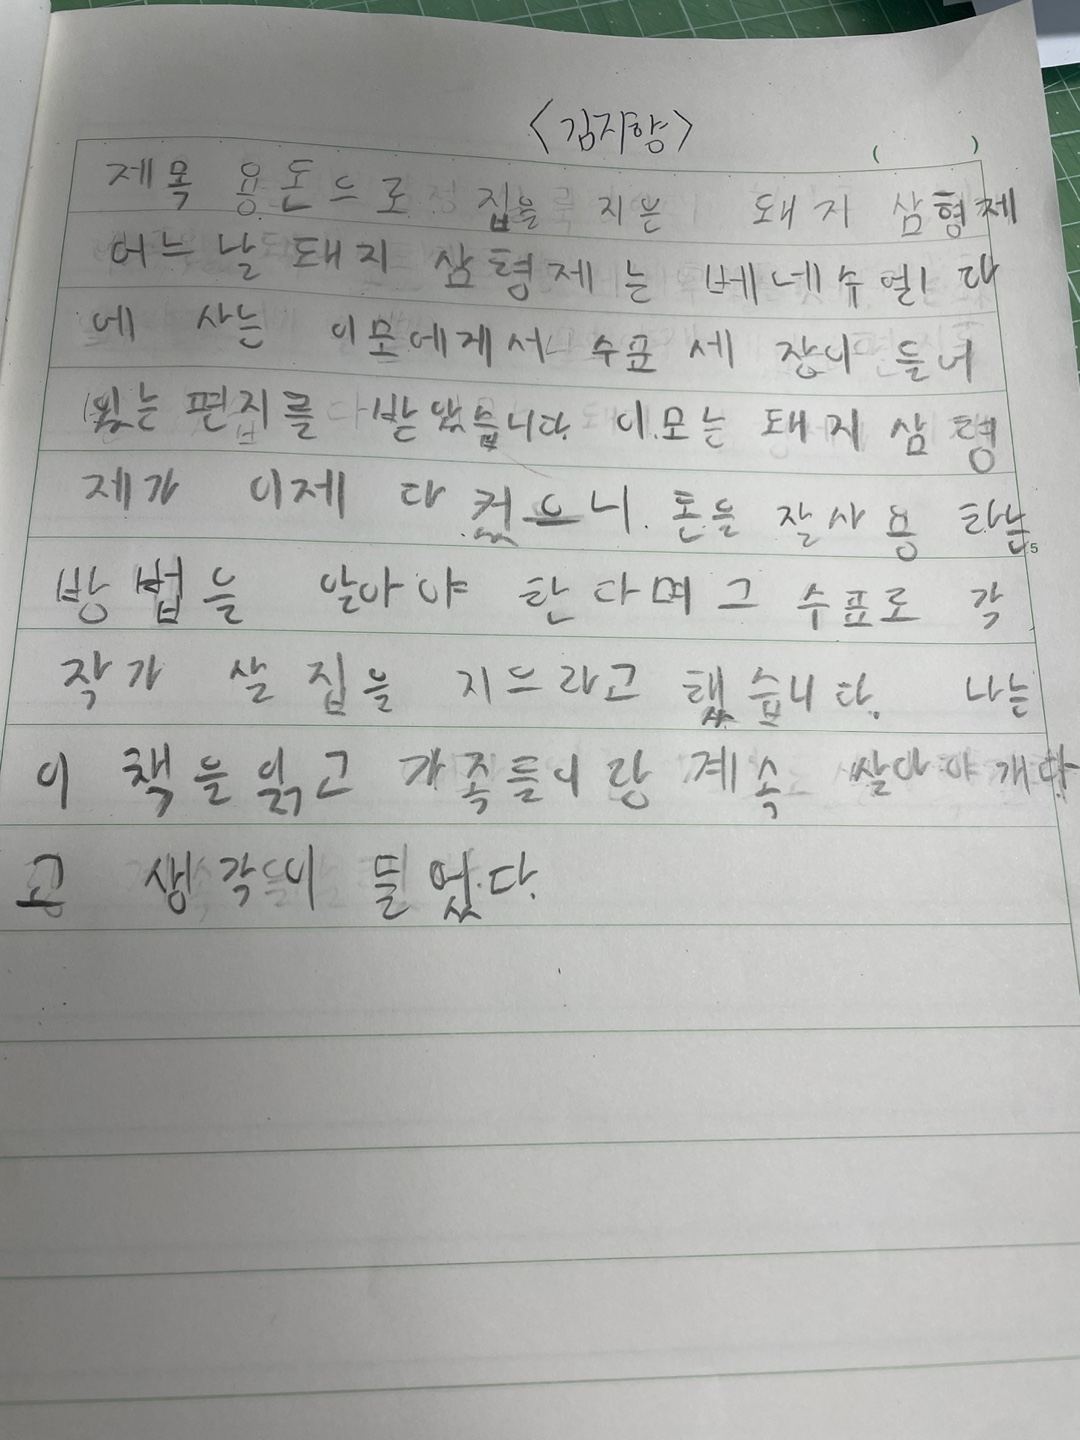 <김지향>
( )
제목 용돈으로 집을 지은 돼지 삼형제
어느날 돼지 삼형제는 베네수엘라
에 사는 이모에게서 수표 세 장이 들어
있는 편지를 받았습니다. 이모는 돼지 삼형
제가 이제 다 컸으니. 돈을 잘사용 하는
5
방법을 알아야 한다며 그 수표로 각
작가 살 집을 지으라고 했습니다. 나는
이 책을 읽고 가족들이랑 계속 쌀아야 개다
고 생각이 들었다.